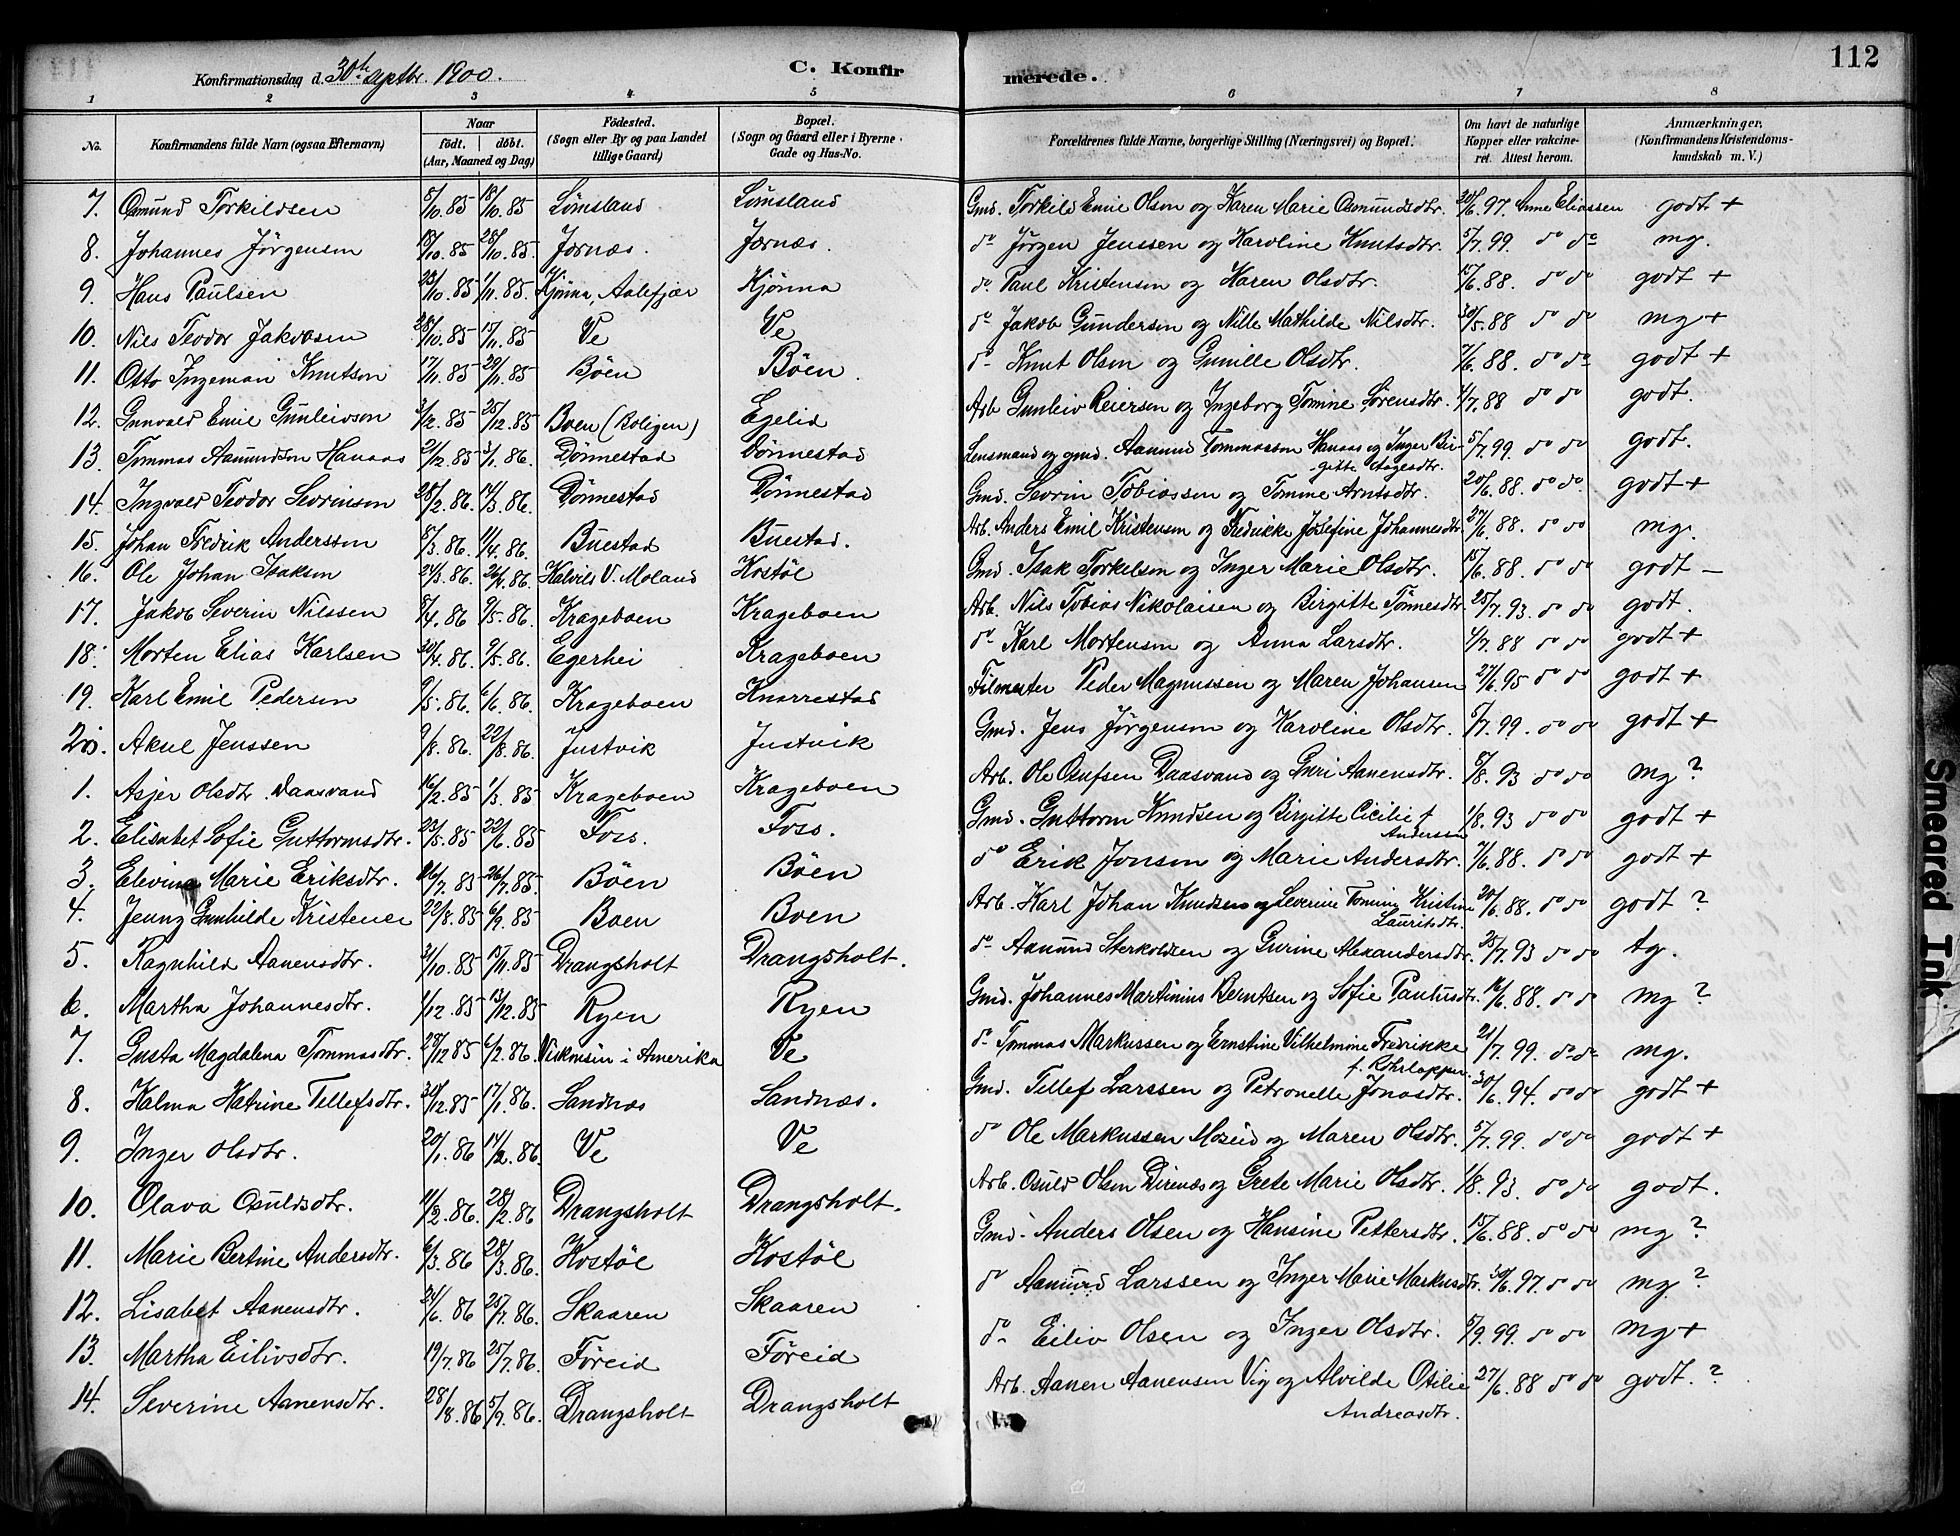 112
Konfirmationsdag d. 30te septbr. 1900.
C. Konfirmerede.
1 2 3 4 5 6 7 8
No. Konfirmandens fulde Navn (ogsaa Efternavn) Naar födt. döbt. (Aar, Maaned og Dag) Födested. (Sogn eller By og paa Landet tillige Gaard) Bopæl. (Sogn og Gaard eller i Byerne Gade og Hus-No. Forældrenes fulde Navne, borgerlige Stilling (Næringsvei) og Bopæl. Om havt de naturlige Kopper eller vakcineret. Attest herom. Anmærkninger. (Konfirmandens Kristendomskundskab m. V.)
7. Osmund Torkildsen 5/10.85 18/10.85 Lømsland Lømsland Gmd. Torkild Emil Olsen og Karen Marie Osmundsdtr. 30/6.97. Anne Eliassen godt +
8. Johannes Jørgensen 13/10.85 28/10.85. Jornæs. Jornæs. do Jörgen Jenssen og Karoline Knutsdtr. 5/7.99. do do mg.
9. Hans Paulsen 23/10.85 1/11.85. Kjönna, Aalefjær Kjönna do. Paul Kristensen og Karen Olsdtr. 15/6.88. do do godt +
10. Nils Teodor Jakobsen 28/10.85 15/11.85 Ve Ve do Jakob Gundersen og Nille Mathilde Nilsdtr. 30/5.88 do do mg +
11. Otto Ingeman Knutson 17/11.85 29/11.85 Böen Böen. do Knut Olsen og Gunille Olsdtr. 7/6.88. do do godt +
12. Gunvald Emil Gunleivson 3/12.85 25/12.85 Boen (Boligen) Egelid Arb Gunleiv Reiersen og Ingeborg Tomine Sörensdtr. 4/7.88 do do godt.
13. Tommas Aamundson Hanaas 21/12.85 3/1.86. Dönnestad Dönnestad Lensmand og gmd. Aamund Tommasson Hanaas og Inger Birgitte Aagesdtr. 5/7.99. do do godt.
14. Ingvald Teodor Sevrinson 28/2.86. 14/3.86. Dönnestad Dönnestad Gmd. Sevrin Tobiassen og Tomine Arntsdtr. 20/6.88. do do. godt +
15. Johan Fredrik Andersson 8/3.86. 11/4.86. Buestad Buestad. Arb. Anders Emil Kristensen og Fredrikke Josefine Johannesdtr. 27/6.88. do do mg.
16. Ole Johan Isaksen 24/3.86. 26/4.86. Kalvils V. Moland Kostöl Gmd. Isak Torkelson og Inger Marie Olsdtr. 15/6.88. do do godt –
17. Jakob Severin Nilssen 8/4.86 9/5.86. Krageboen Krageboen Arb. Nils Tobias Nikolaisen og Birgitte Tönnesdtr. 25/7.93. do do godt.
18. Morten Elias Karlsen 20/4.86. 9/5.86. Egerhei Krageboen do Karl Mortensen og Anna Larsdtr. 4/7.88 do do godt +
19. Karl Emil Pedersen 9/5.86. 6/6.86. Krageboen Knarrestad Filmester Peder Magnussen og Maren Johansen 27/6.95 do do godt +
20. Aksel Jenssen 9/8.86. 22/8.86. Justvik Justvik Gmd. Jens Jörgenson og Karoline Olsdtr. 5/7.99. do do godt +
1. Asjer Olsdtr. Daasvand 16/2.85 1/3.85 Krageboen Krageboen Arb. Ole Osufsen Daasvand og Guri Aanensdtr. 5/8.93 do do mg ?
2. Elisabet Sofie Guttormsdtr. 23/5.85 22/6.85 Foss. Foss. Gmd. Guttorm Knudsen og Birgitte Cicilie f Andersen 1/8.93 do do godt +
3. Elevine Marie Eriksdtr. 16/7.85 26/7.85. Böen Böen do Erik Jonsen og Marie Andersdtr. 7/6.88. do do godt +
4. Jenny Gunhilde Kristene 22/8.85 6/9.85 Boen Boen Arb. Karl Johan Knudsen og Severine Tomine Kristine Lauritsdtr. 20/6.88. do do godt ?
5. Ragnhild Aanensdtr. 21/10.85 15/11.85 Drangsholt Drangsholt. do Aamund Sterkoldsen og Gurine Alexandersdtr. 25/7.93 do do tg.
6. Martha Johannesdtr. 1/12.85 13/12.85 Ryen Ryen Gmd. Johannes Martinius Berntsen og Sofie Paulusdtr. 16/6.88. do do mg ?
7. Gusta Magdalena Tommasdtr. 28/12 85 6/2.86. Viskonsin i Amerika Ve do Tommas Markussen og Ernstine Vilhelmine Fredrikke f. Rohrlapper. 21/7.99. do do mg.
8. Kalma Katrine Tellefsdtr. 30/12.85 17/1.86. Sandnæs Sandnæs. Gmd. Tellef Larssen og Petronelle Jonasdtr. 30/6.94. do do godt +
9. Inger Olsdtr. 20/1.86 14/2.86. Ve Ve do Ole Markussen Moseid og Maren Olsdtr. 5/7.99. do do godt +
10. Olava Osuldsdtr. 11/2.86. 28/2.86 Drangsholt Drangsholt. Arb. Osuld Olsen Direnæs og Grete Marie Olsdtr. 1/8.93. do do godt.
11. Marie Bertine Andersdtr. 6/3.86 28/3.86. Kostöl Kostöl Gmd. Anders Olsen og Hansine Pettersdtr. 15/6.88. do do mg ?
12. Lisabet Aanensdtr. 24/6.86 25/7.86. Skaaren Skaaren do Aamund Larssen og Inger Marie Markusdtr. 30/6.97. do do mg ?
13. Martha Eilivsdtr. 19/7.86 25/7.86. Föreid Föreid do Eiliv Olsen og Inger Olsdtr. 5/9.99. do do mg +
14. Severine Aanensdtr. 28/8.86 5/9.86. Drangsholt Drangsholt Arb. Aanen Aanensen Vig og Alvilde Otilie Andreasdtr. 27/6.88 do do godt. ?
Smeared Ink